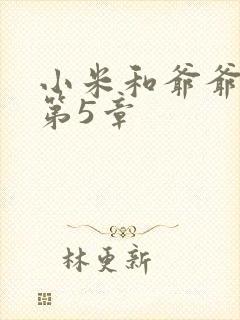 小米和爷爷
第5章
林更新